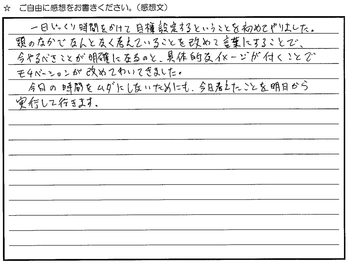 ☆ ご自由に感想をお書きください。(感想文)
一日じっくり時間をかけて目標設定するということを初めてやりました。
頭のなかでなんとなく考えていることを改めて言葉にすることで、
今やるべきことが明確になるのと、具体的なイメージが付くことで
モチベーションが改めてわいてきました。
今日の時間をムダにしないためにも、今日考えたことを明日から
実行して行きます。